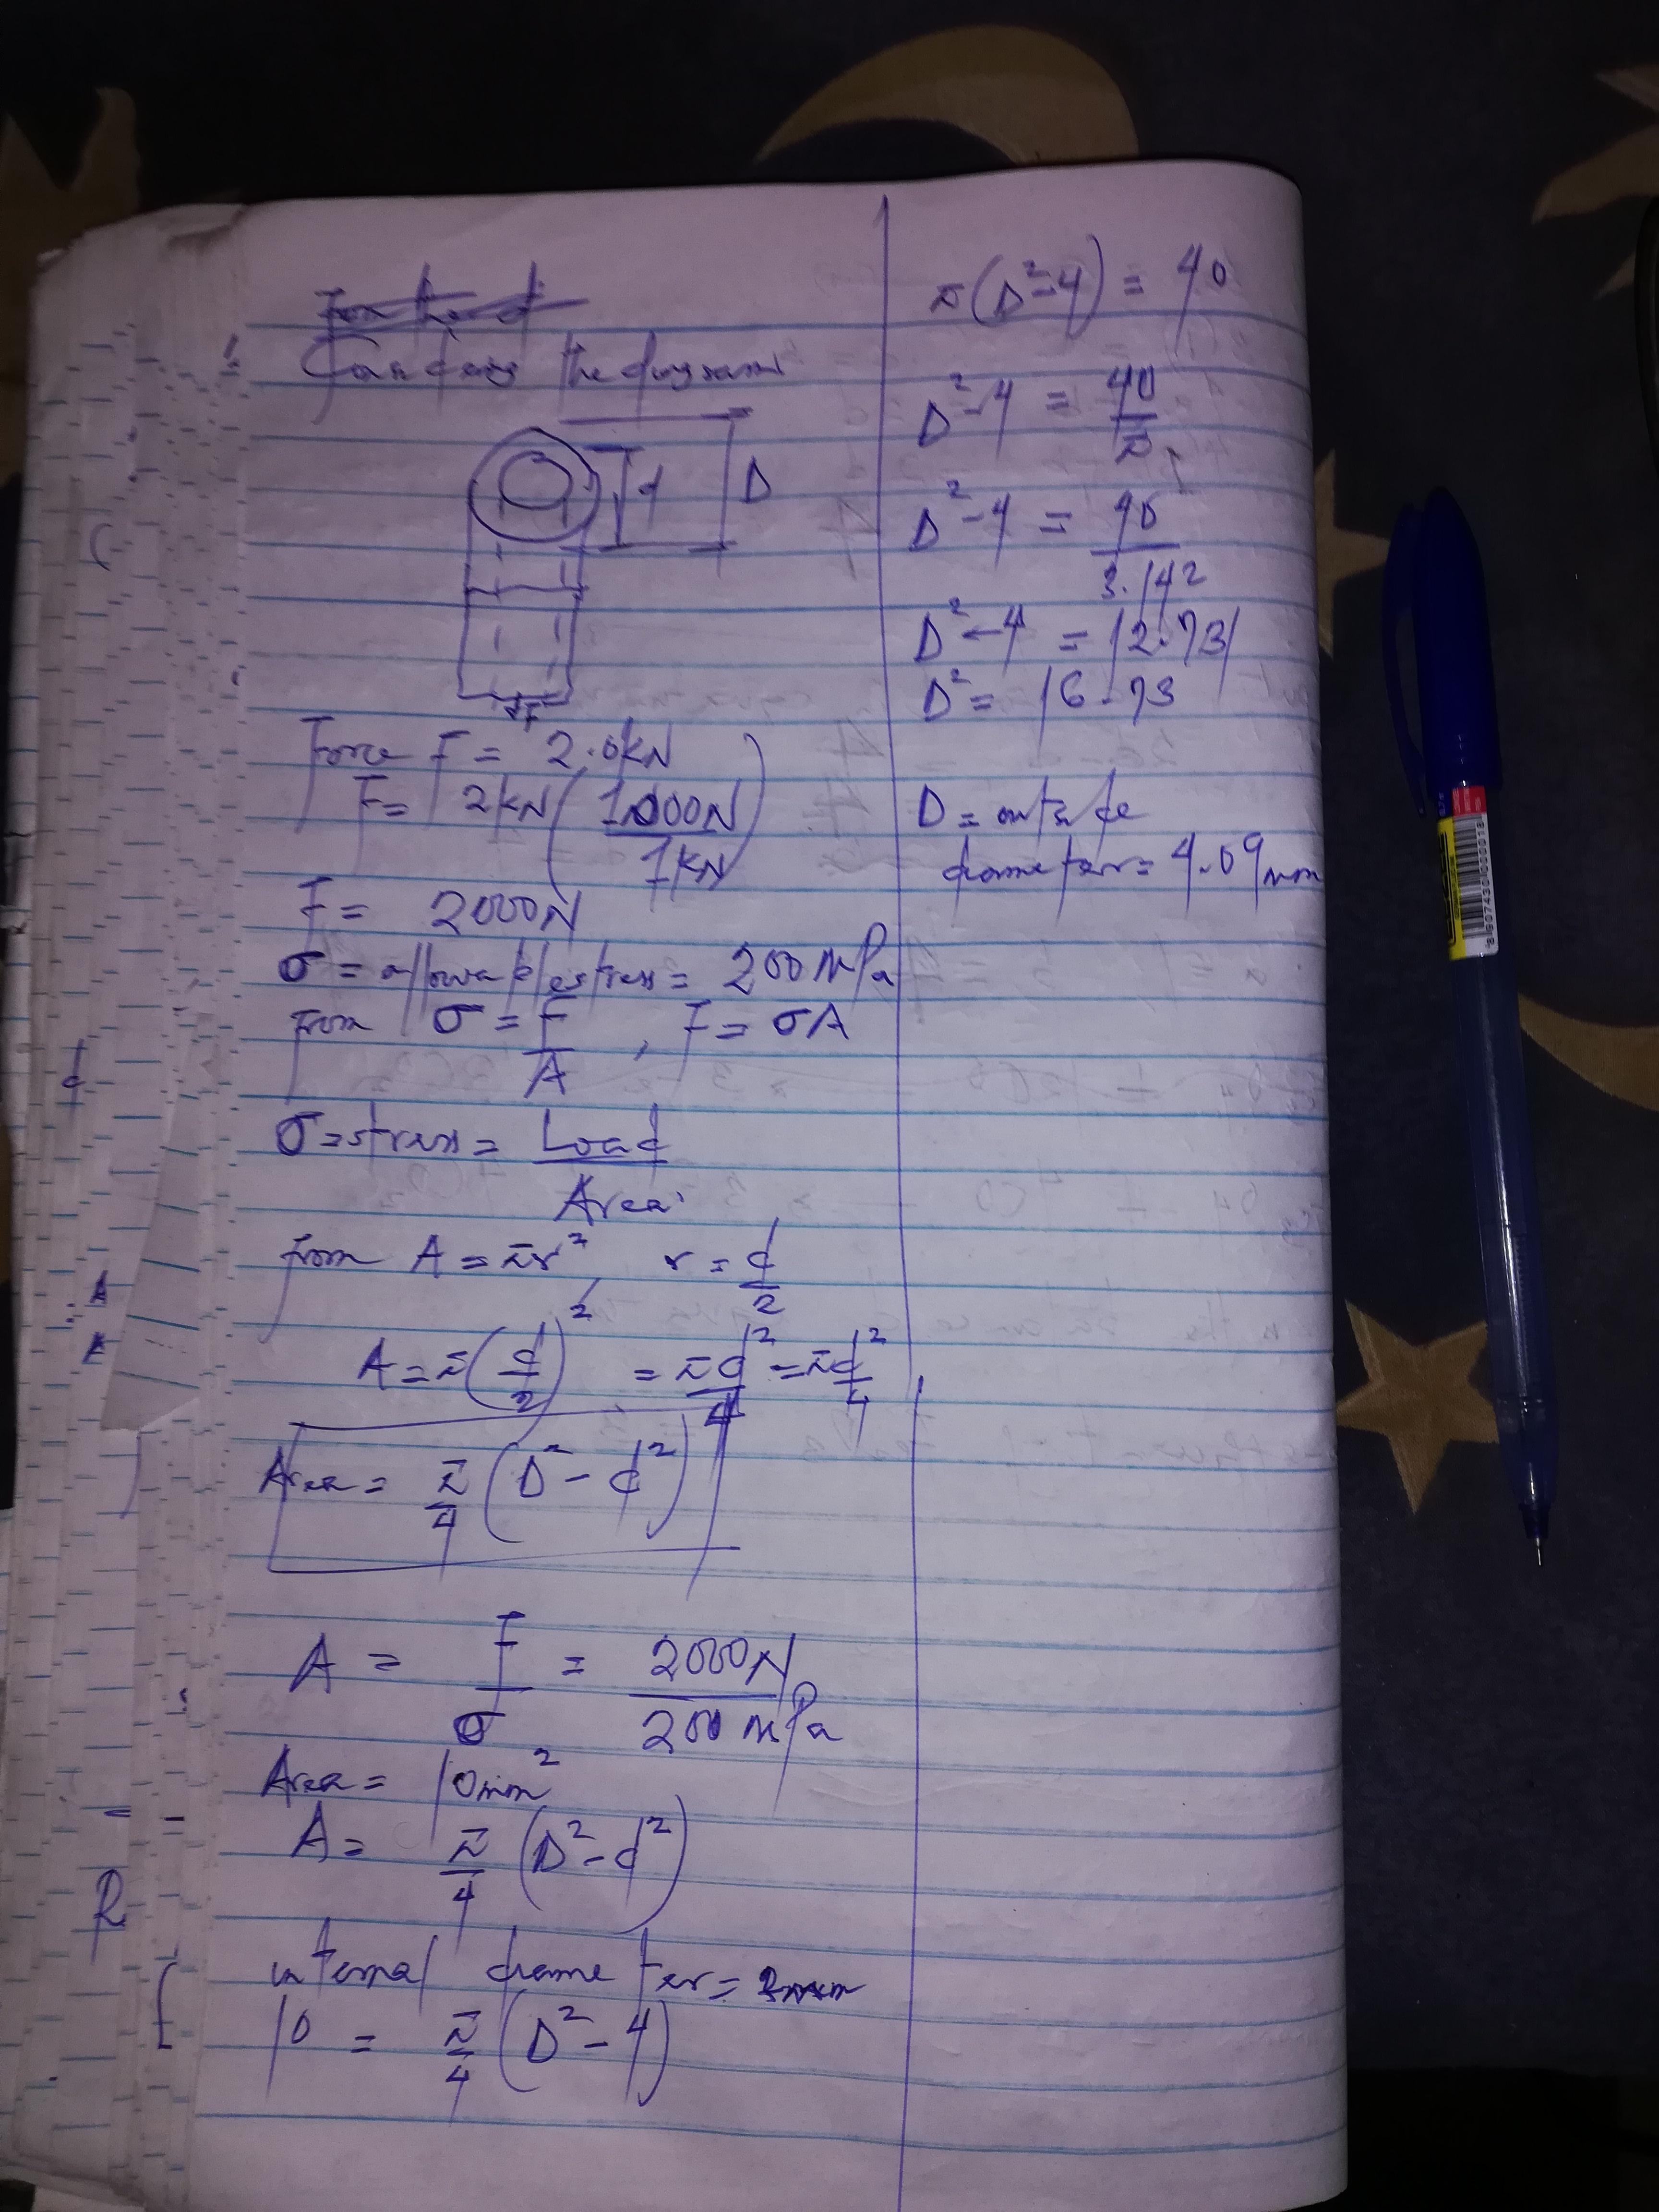 Considering the diagram
d D
F
Force F = 2.0kN
F = 2kN (1000N / 1kN)
F = 2000N
σ = allowable stress = 200 MPa
from σ = F/A , F = σA
σ = stress = Load / Area
from A = πr² r = d/2
A = π(d/2)² = πd²/4 = πd²/4
Area = π/4 (D² - d²)
A = F/σ = 2000N / 200 MPa
Area = 10mm²
A = π/4 (D² - d²)
internal diameter = 2mm
10 = π/4 (D² - 4)
π(D² - 4) = 40
D² - 4 = 40/π
D² - 4 = 40/3.142
D² - 4 = 12.731
D² = 16.73
D = outside
diameter = 4.09mm
R
8907430000018